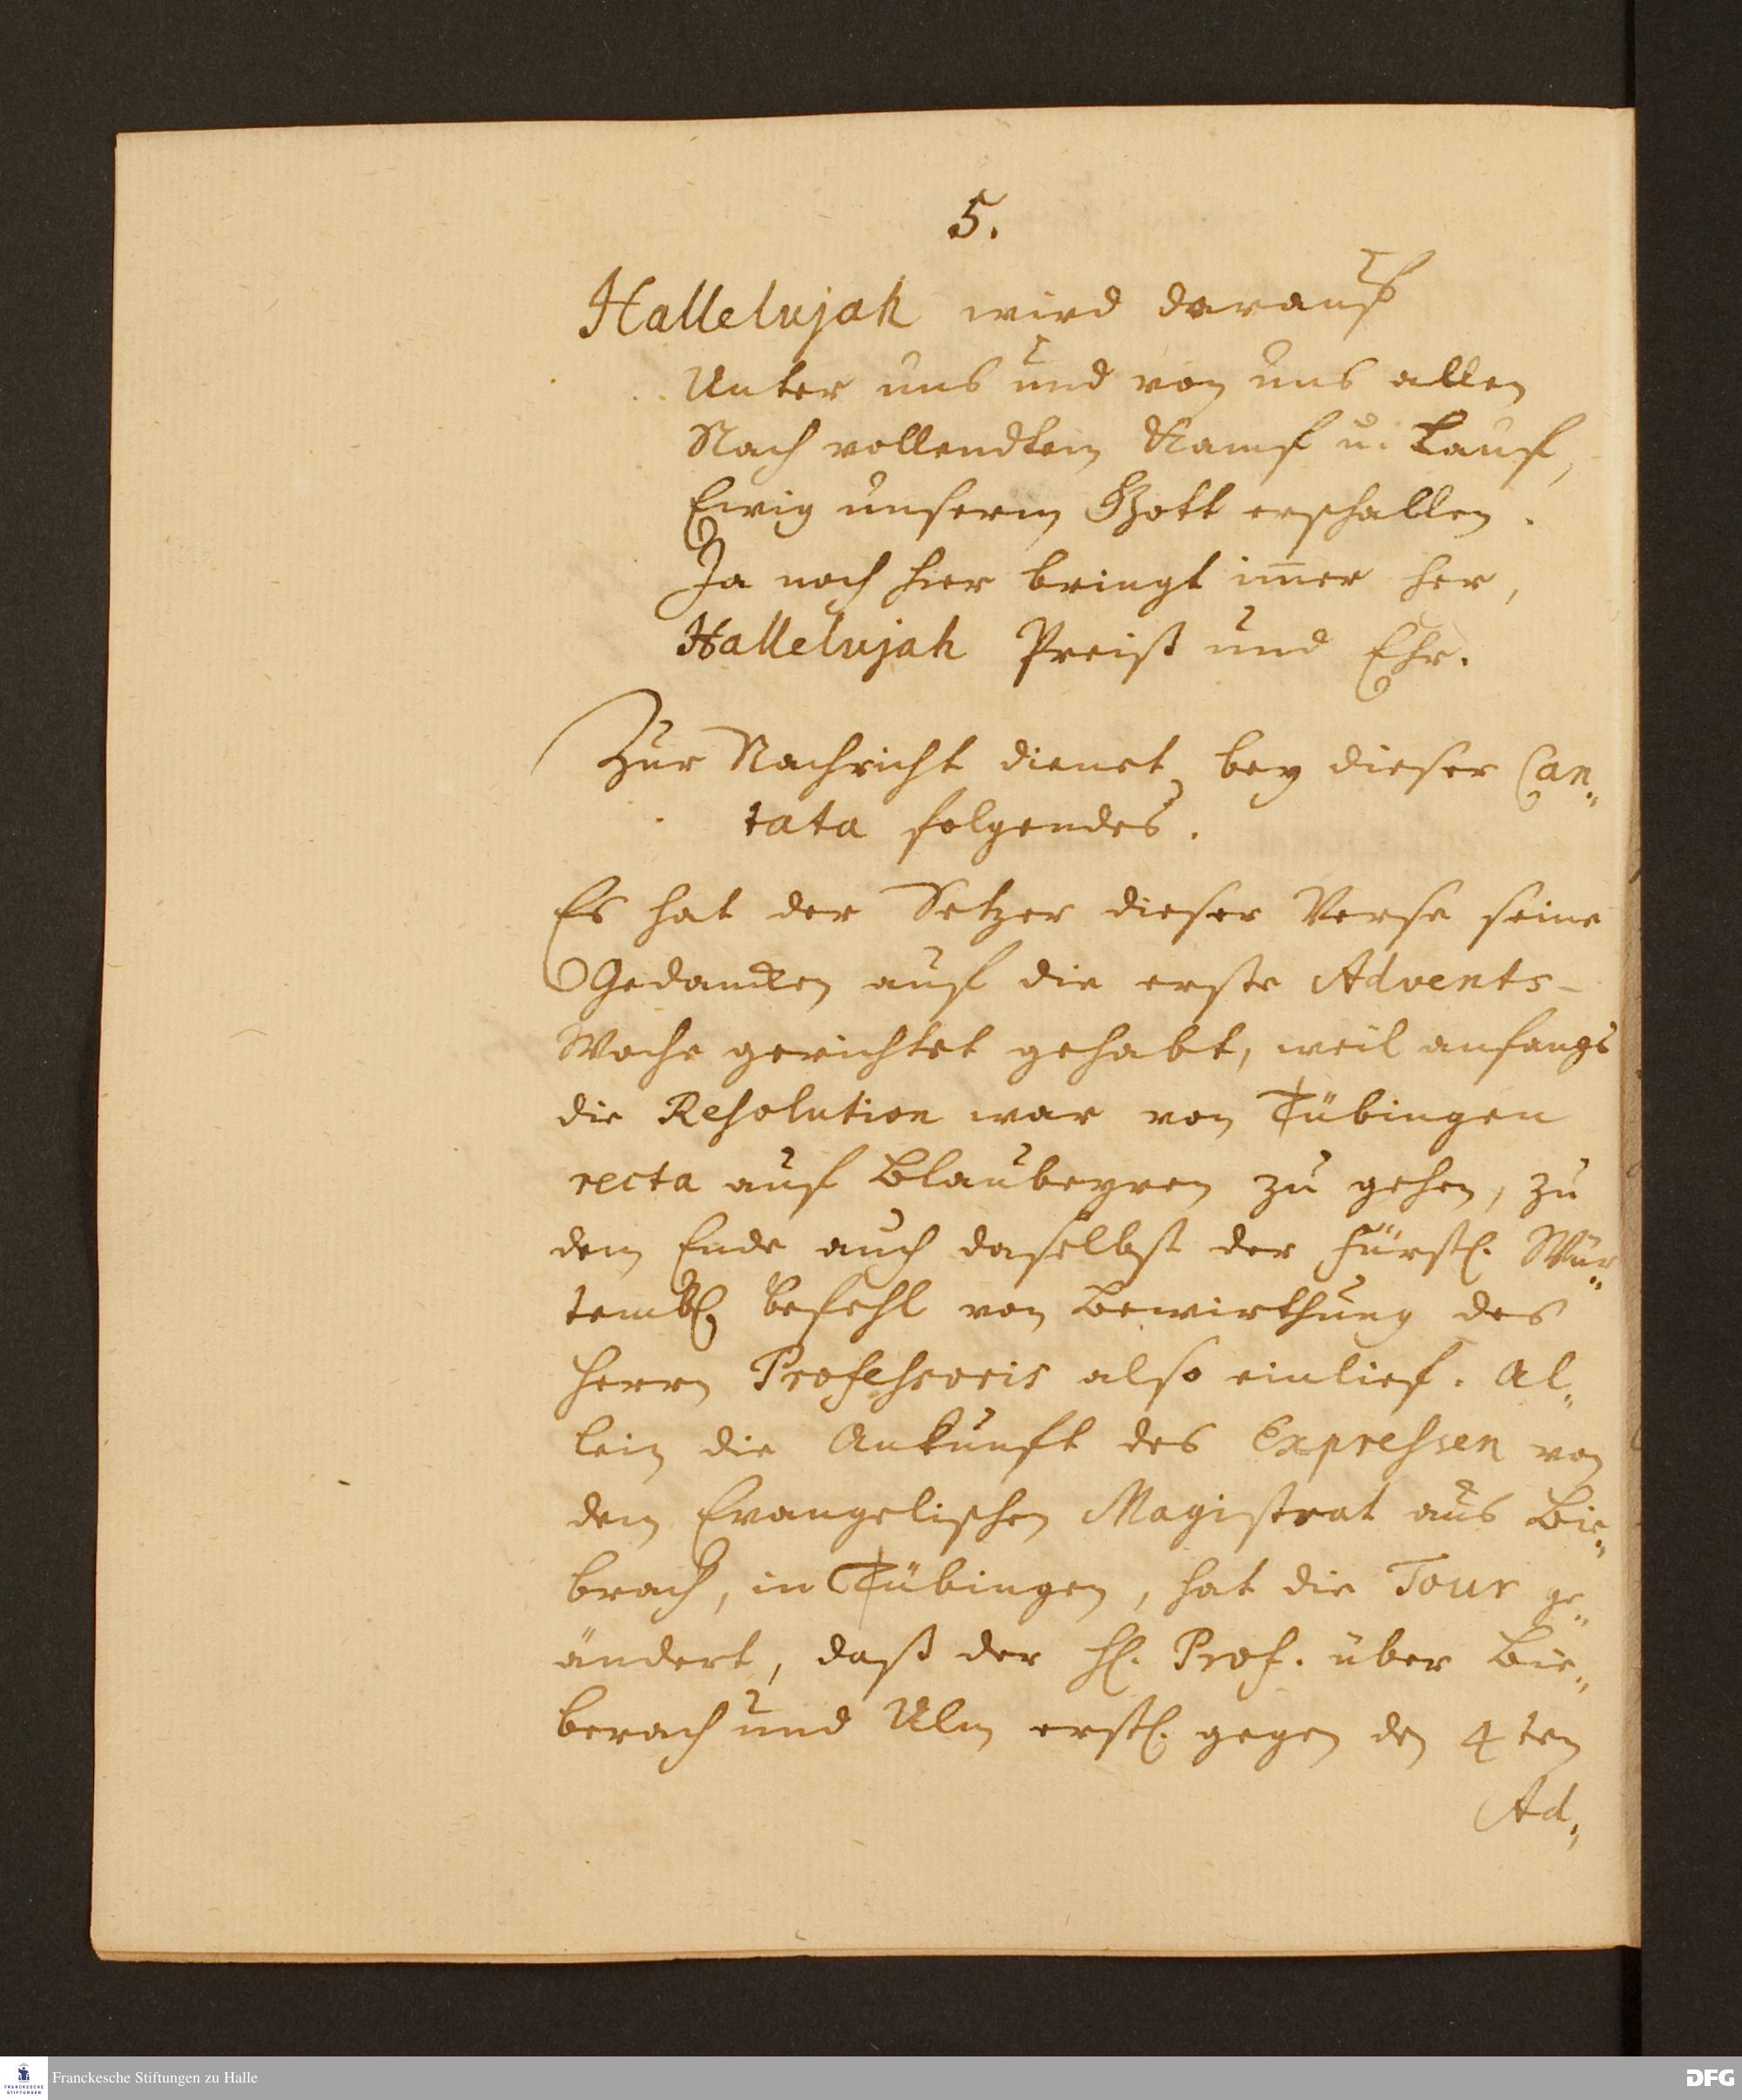 5.
Hallelujah wird darauf
Unter uns und von uns allen
Nach vollendtem Kampf u. Lauf,
Ewig unserm Gott erschallen.
Ja noch hier bringt im̅er her,
Hallelujah Preiß und Ehr.
Zur Nachricht dienet bey dieser Can„
tata folgendes.
Es hat der Setzer dieser Verse seine
Gedancken auf die erste Advents-
Woche gerichtet gehabt, weil anfangs
die Resolution war von Tübingen
recta auf Blaubeyren zu gehen, zu
dem Ende auch daselbst der Fürstl. Wür„
temb. Befehl von Bewirthung des
Herrn Professoris also einlief. Al„
lein die Ankunft des Expressen von
dem Evangelischen Magistrat aus Bie„
brach, in Tübingen, hat die Tour ge„
ändert, daß der H. Prof. über Bie„
berach und Ulm erstl. gegen den 4ten
Ad„
Franckesche Stiftungen zu Halle
FRANCKESCHE
STIFTUNGEN
DFG